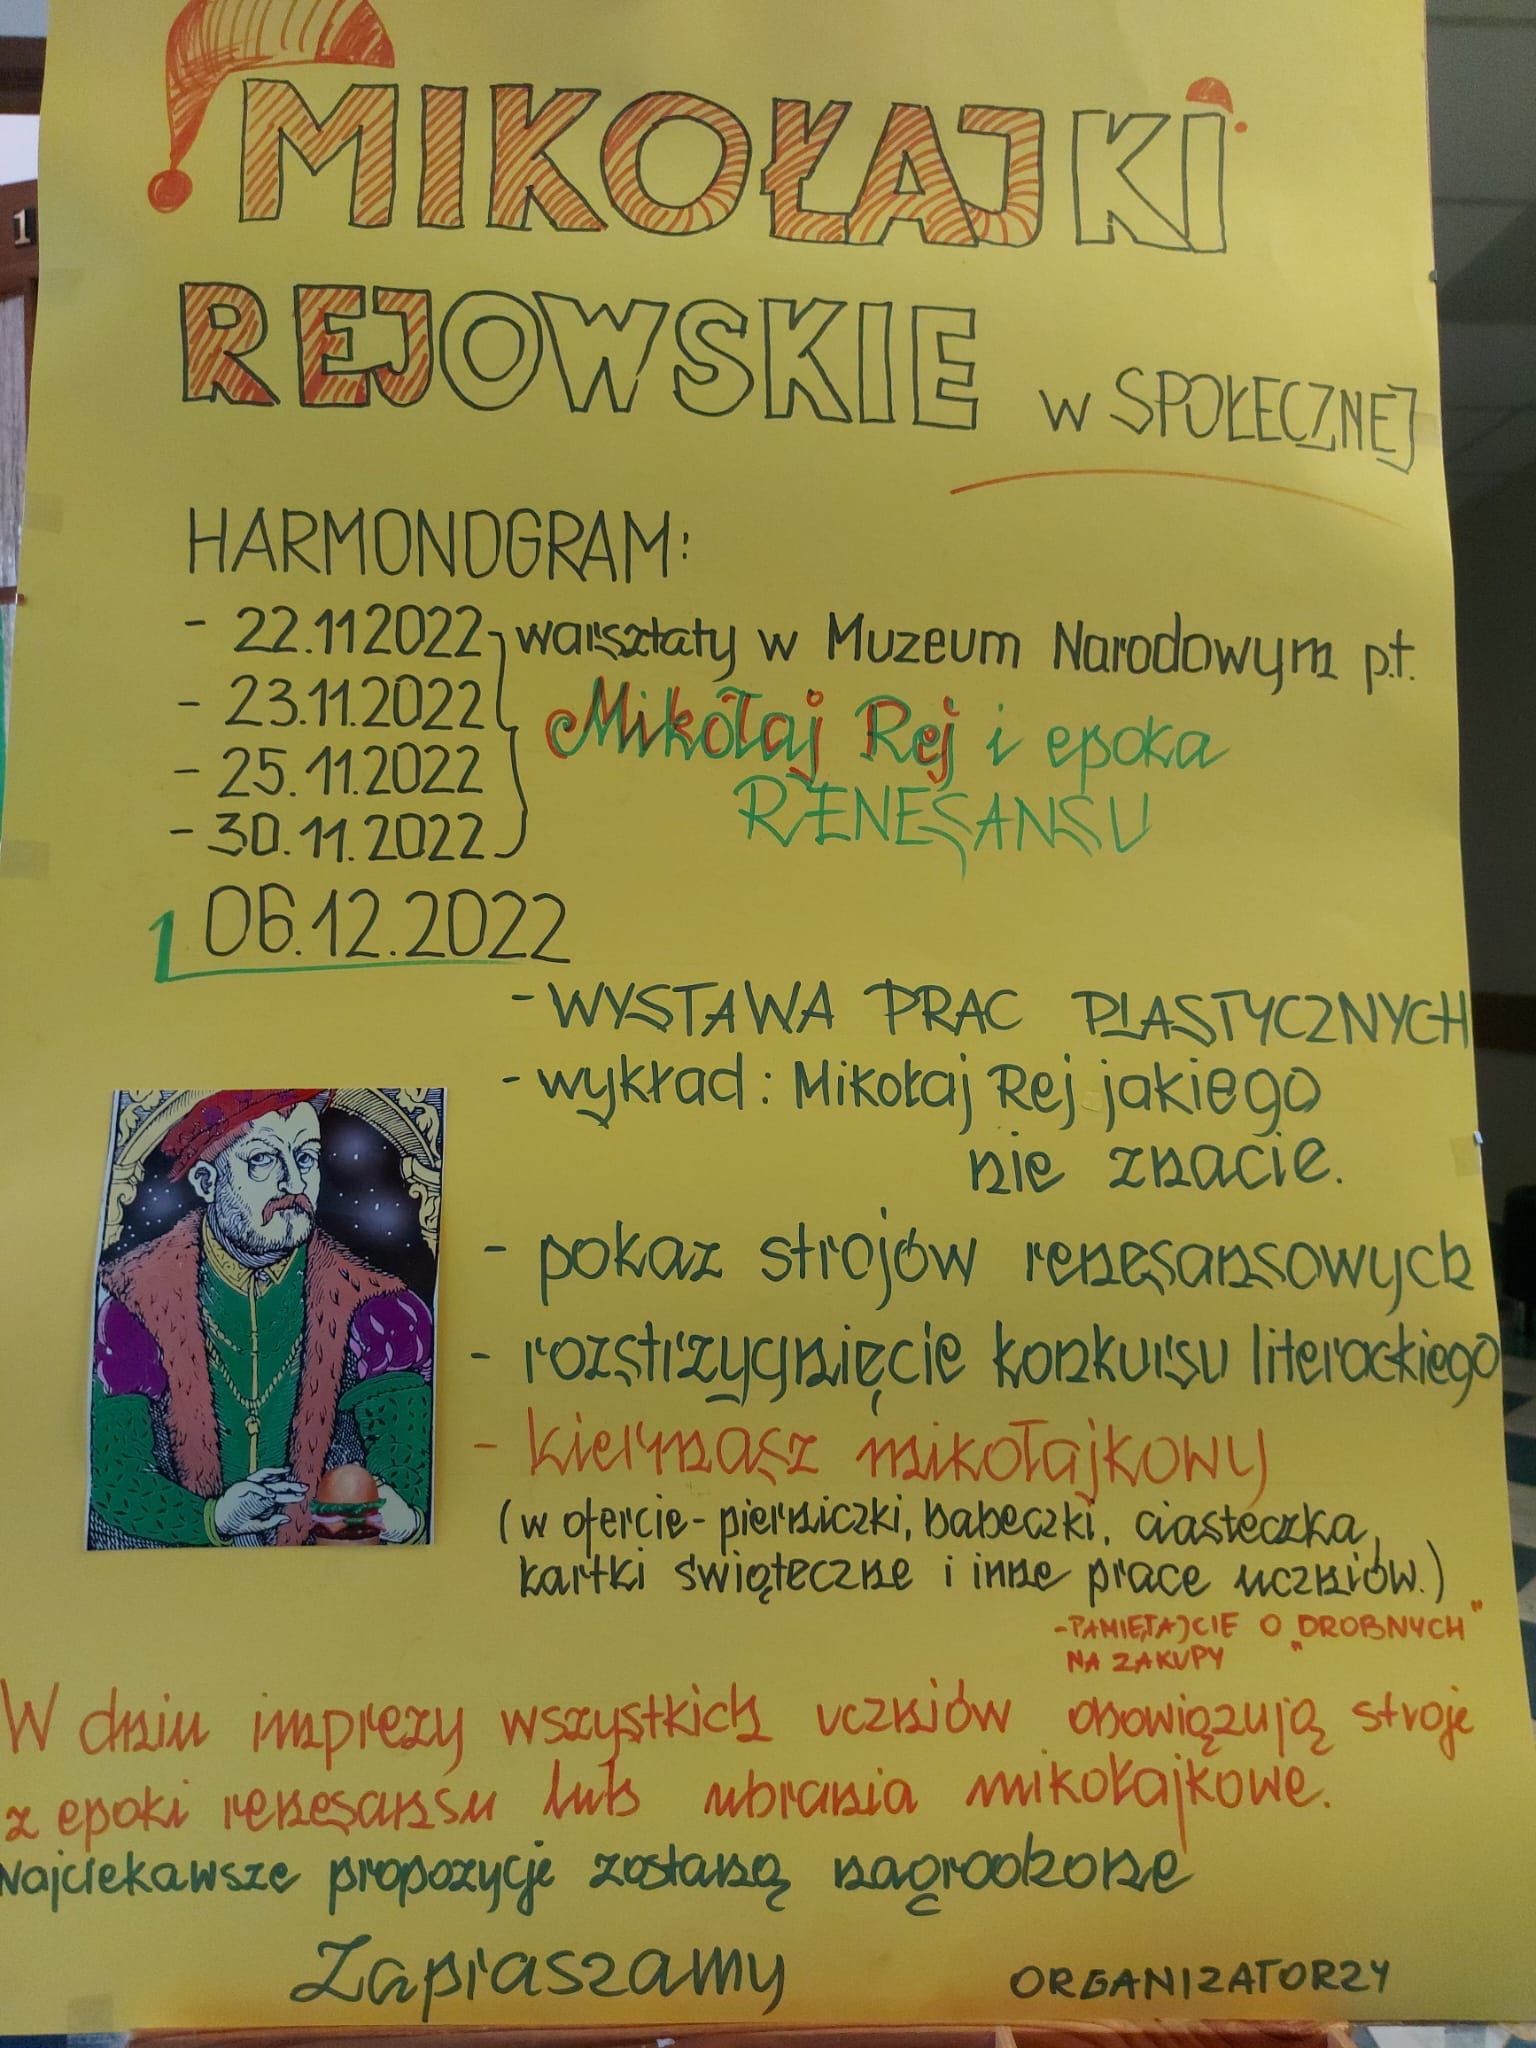 1
MIKOŁAJKI
REJOWSKIE w SPOŁECZNEJ
HARMONOGRAM:
- 22.11 2022 warsztaty w Muzeum Narodowym p.t.
- 23.11.2022 Mikołaj Rej i epoka
- 25.11.2022 RENESANSU
- 30.11.2022
06.12.2022
- WYSTAWA PRAC PLASTYCZNYCH
- wykład: Mikołaj Rej jakiego
nie znacie.
- pokaz strojów renesansowych
- rozstrzygnięcie konkursu literackiego
- kiermasz mikołajkowy
(w ofercie - pierniczki, babeczki, ciasteczka,
kartki świąteczne i inne prace uczniów.)
- PAMIĘTAJCIE O "DROBNYCH"
NA ZAKUPY
W dniu imprezy wszystkich uczniów obowiązują stroje
z epoki renesansu lub ubrania mikołajkowe.
Najciekawsze propozycje zostaną nagrodzone
Zapraszamy ORGANIZATORZY